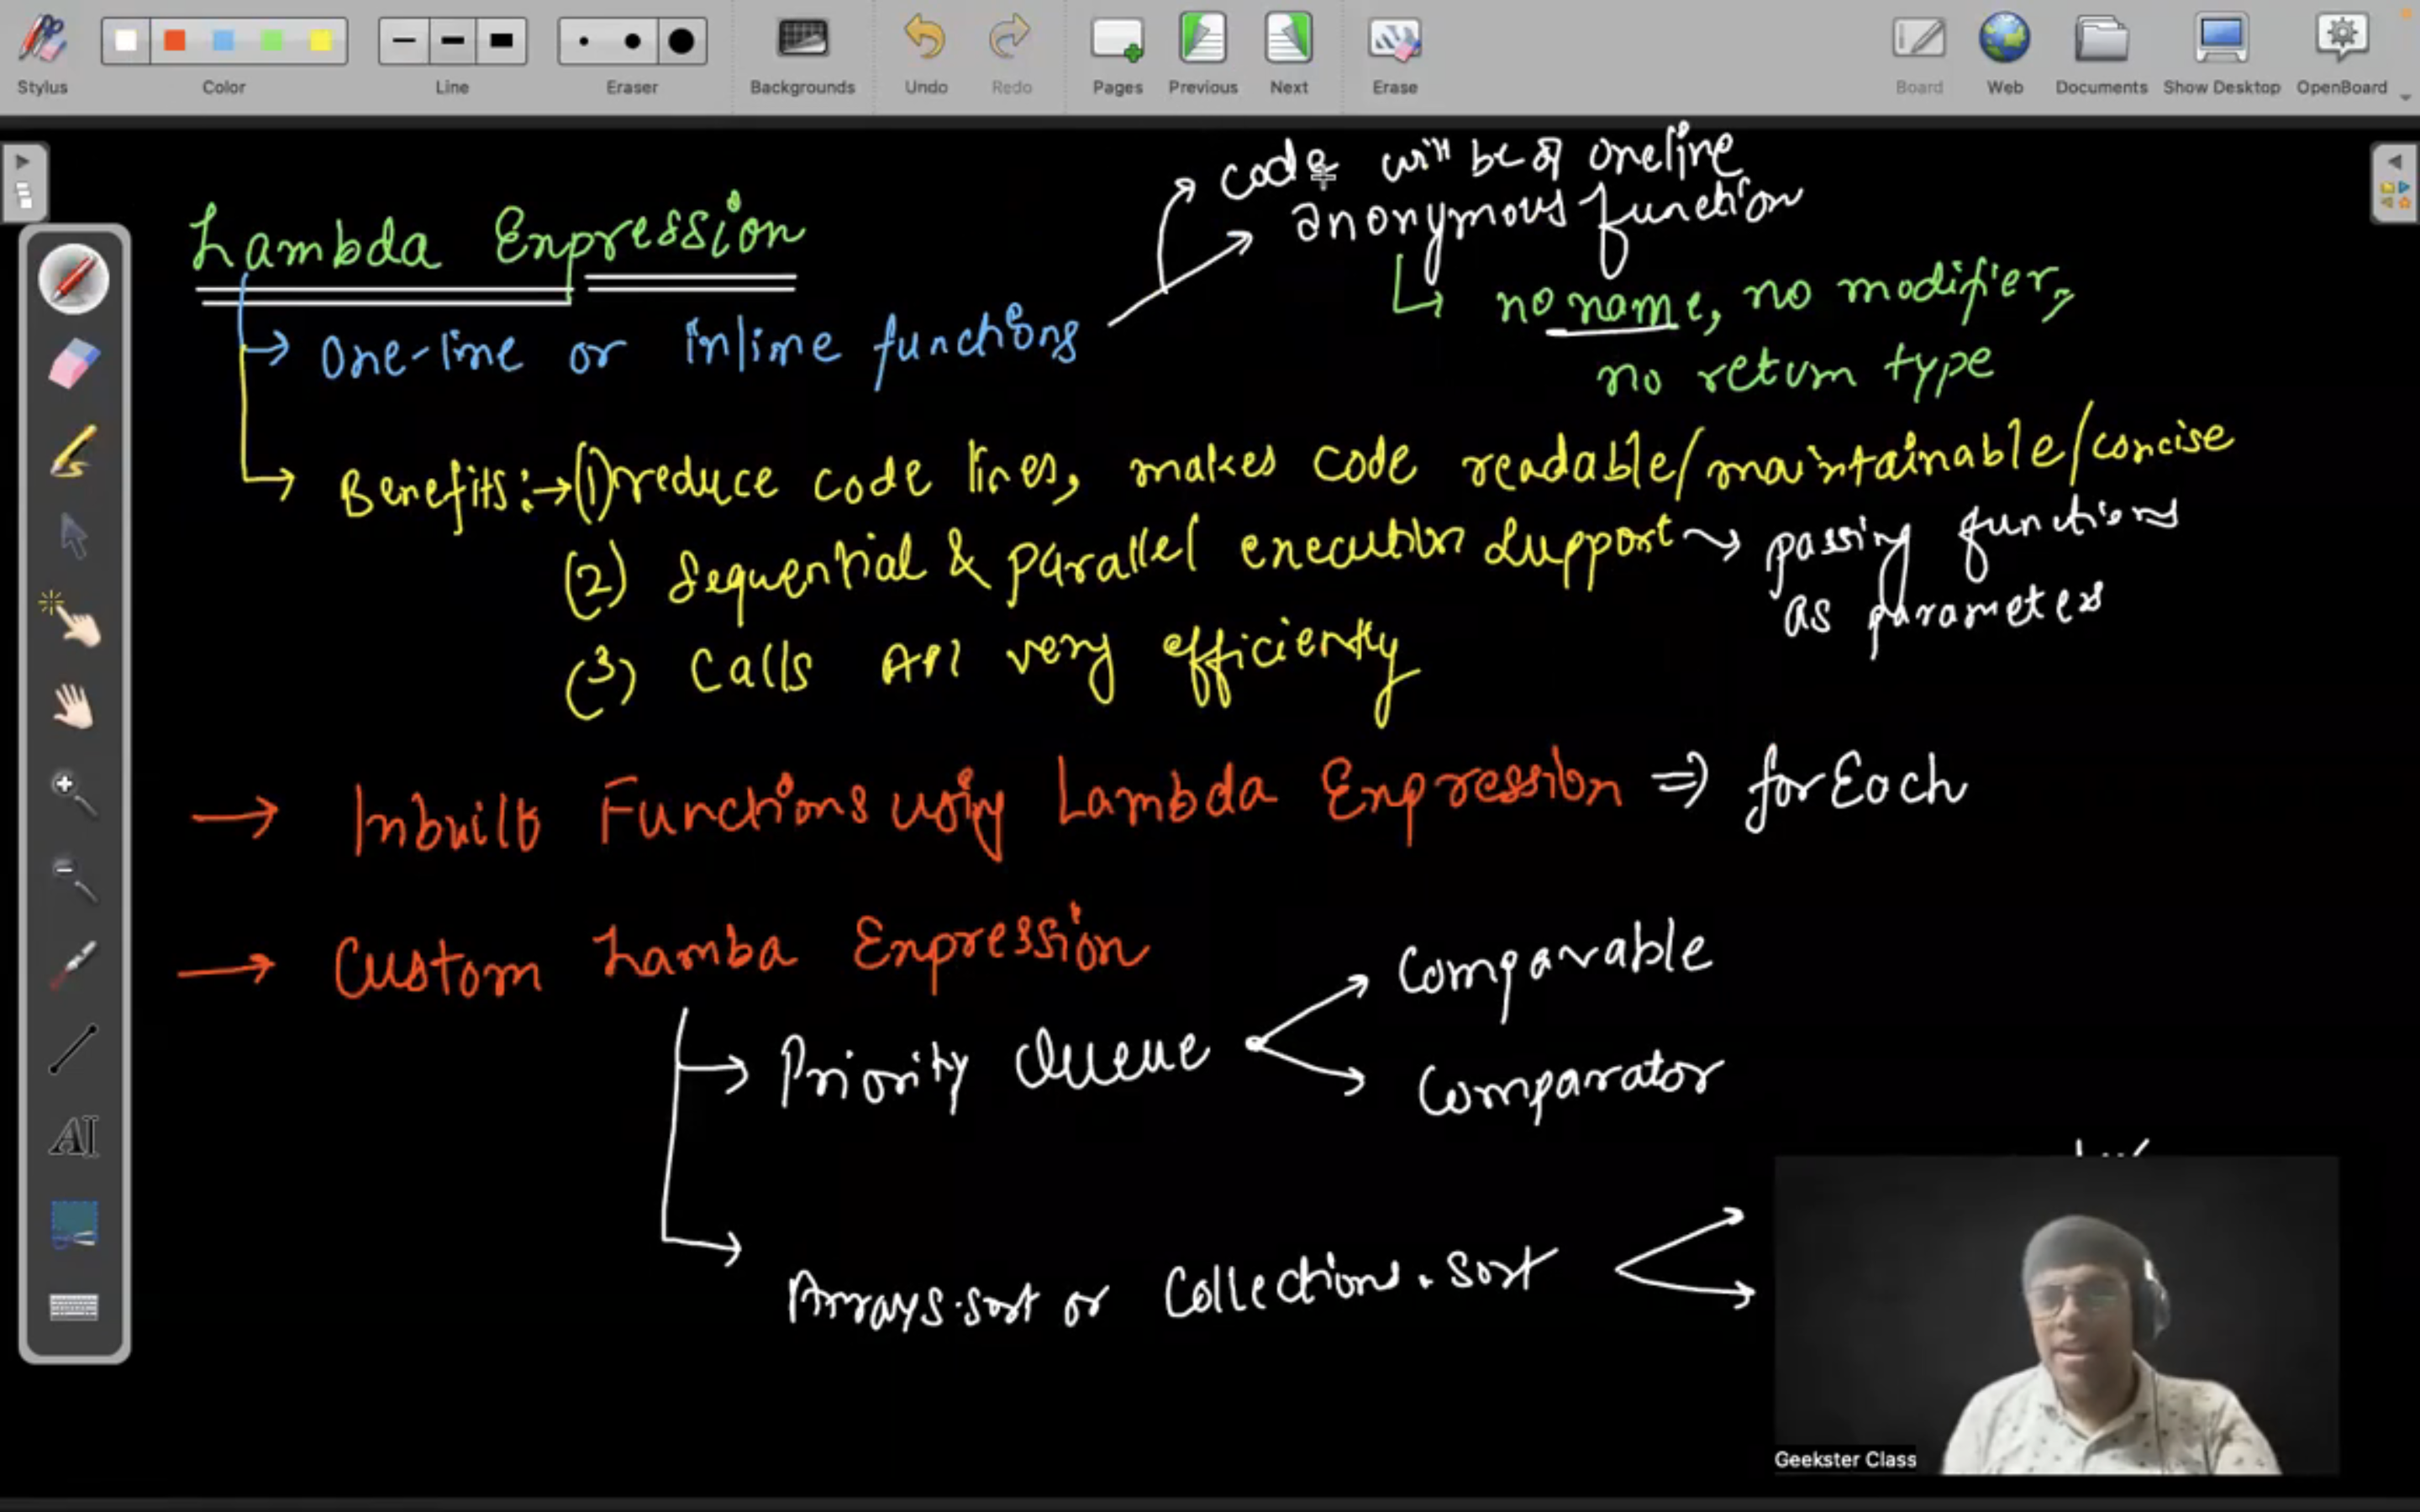 Stylus
Color
Line
Eraser
Backgrounds
Undo
Redo
Pages
Previous
Next
Erase
Board
Web
Documents
Show Desktop
OpenBoard
Lambda Expression
→ One-line or inline functions
→ code will be of oneline
→ anonymous function
↳ no name, no modifier,
no return type
→ Benefits:→(1) reduce code lines, makes code readable/maintainable/concise
(2) Sequential & parallel execution support → passing functions
as parameters
(3) Calls API very efficiently
→ Inbuilt Functions using Lambda Expression ⇒ forEach
→ Custom Lamba Expression
→ Priority Queue
→ Comparable
→ Comparator
→ Arrays.sort or Collections.sort
Geekster Class
AI